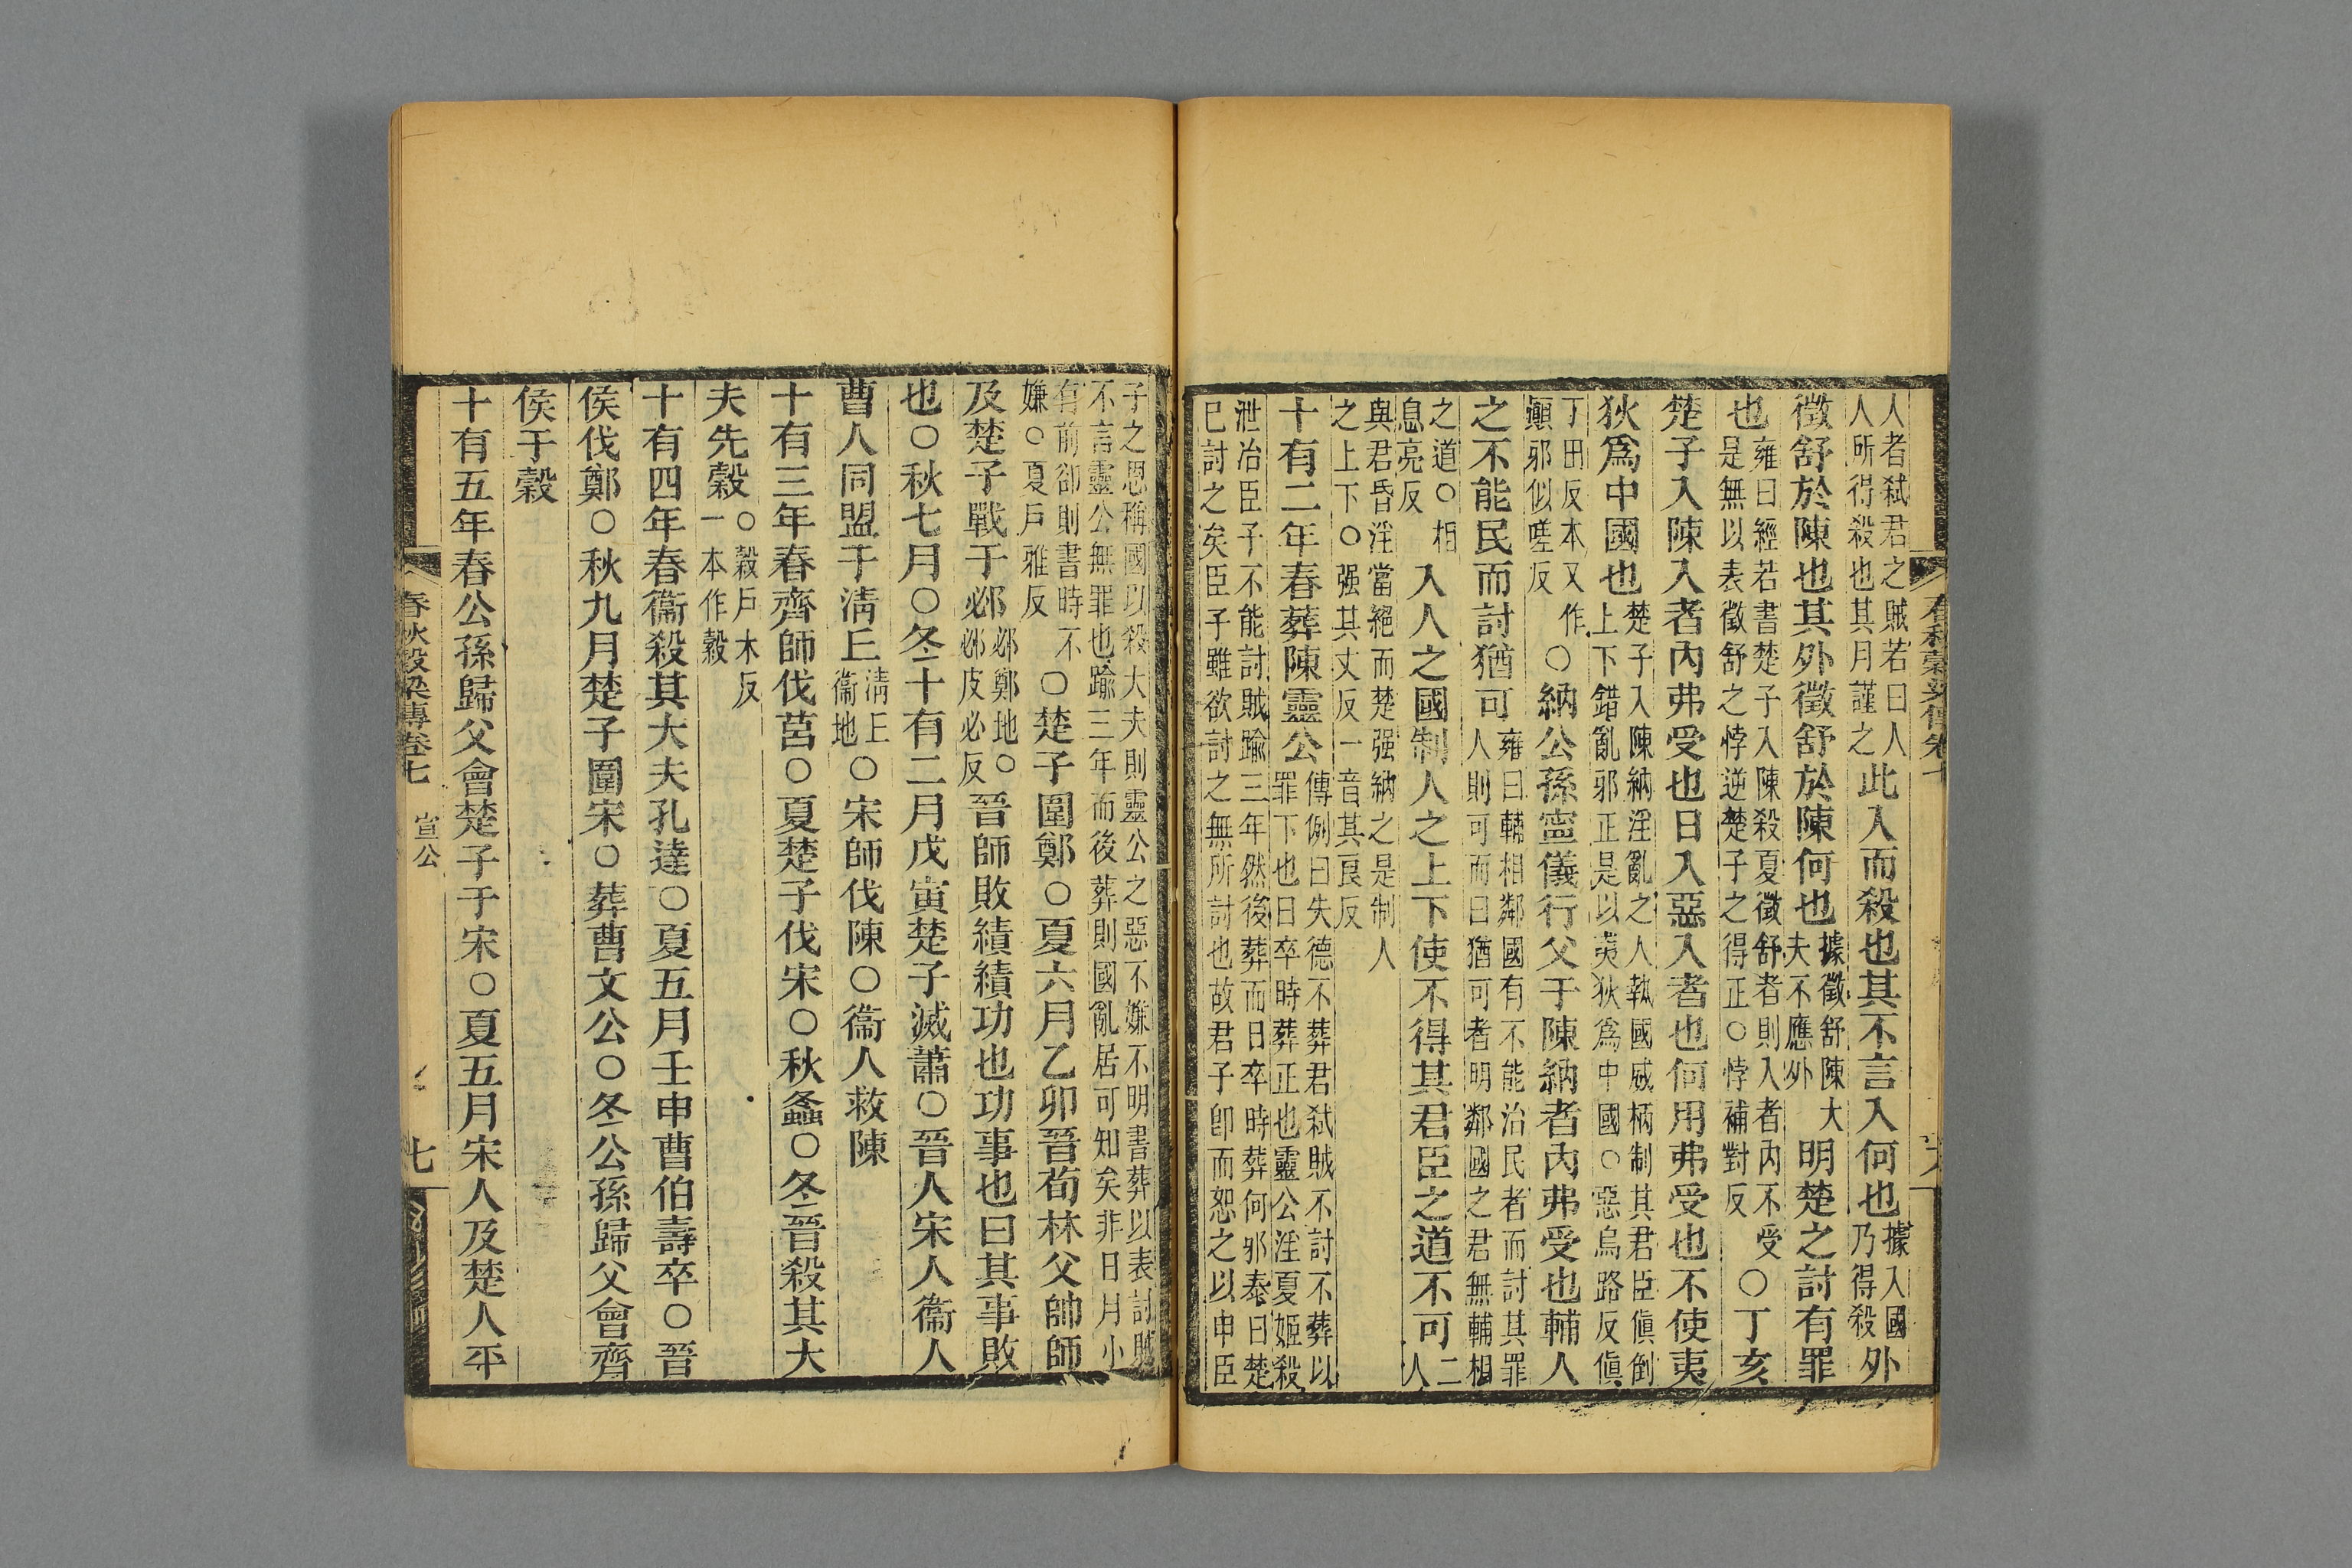 人者弑君之賊若曰人人所得殺也其月謹之此入而殺也其不言入何也據入國乃得殺外
徵舒於陳也其外徵舒於陳何也據徵舒陳大夫不應外明楚之討有罪
也雍曰經若書楚子入陳殺夏徵舒者則入者內不受是無以表徵舒之悖逆楚子之得正○悖補對反○丁亥
楚子入陳入者內弗受也日入惡入者也何用弗受也不使夷
狄爲中國也楚子入陳納淫亂之人執國威柄制其君臣傎倒上下錯亂邪正是以夷狄爲中國○惡烏路反傎
丁田反本又作顚邪似嗟反○納公孫寍儀行父于陳納者內弗受也輔人
之不能民而討猶可雍曰輔相鄰國有不能治民者而討其罪人則可而曰猶可者明鄰國之君無輔相
之道○相息亮反入人之國制人之上下使不得其君臣之道不可二人
與君昏淫當絕而楚强納之是制人之上下○强其丈反一音其良反
十有二年春葬陳靈公傳例曰失德不葬君弑賊不討不葬以罪下也日卒時葬正也靈公淫夏姬殺
泄冶臣子不能討賊踰三年然後葬而日卒時葬何邪泰曰楚已討之矣臣子雖欲討之無所討也故君子卽而恕之以申臣
子之恩稱國以殺大夫則靈公之惡不嫌不明書葬以表討賊不言靈公無罪也踰三年而後葬則國亂居可知矣非日月小
有前卻則書時不嫌○夏戶雅反○楚子圍鄭○夏六月乙卯晉荀林父帥師
及楚子戰于邲邲鄭地○邲皮必反晉師敗績績功也功事也曰其事敗
也○秋七月○冬十有二月戊寅楚子滅蕭○晉人宋人衞人
曹人同盟于淸丘淸丘衞地○宋師伐陳○衞人救陳
十有三年春齊師伐莒○夏楚子伐宋○秋螽○冬晉殺其大
夫先縠○縠戶木反一本作穀
十有四年春衞殺其大夫孔達○夏五月壬申曹伯壽卒○晉
侯伐鄭○秋九月楚子圍宋○葬曹文公○冬公孫歸父會齊
侯于穀
十有五年春公孫歸父會楚子于宋○夏五月宋人及楚人平
春秋穀梁傳卷七 宣公 七